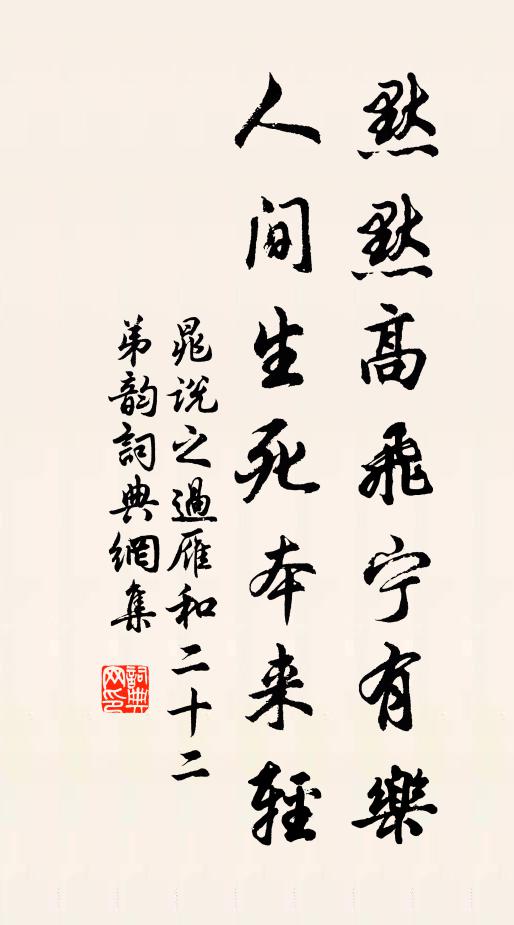 默默高飛宁有樂
人间生死本来輕
晁说之過雁和二十二
弟韵詞典網集
詞典
网印